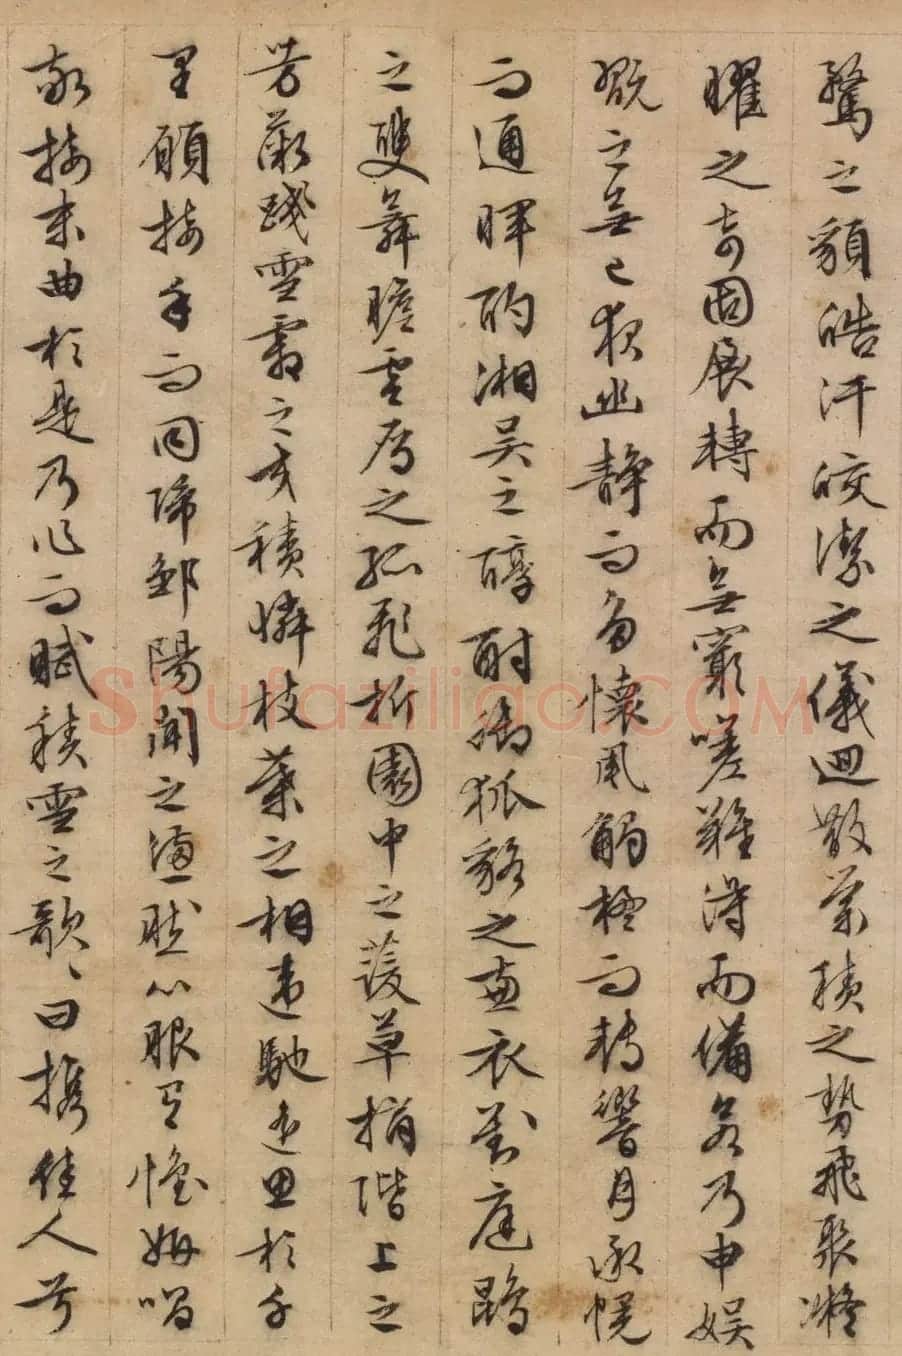 鶩之貌皓汗皎潔之儀迴散縈積之勢飛聚凝
曜之奇固展轉而無窮嗟難得而備若乃申娛
翫之無已夜幽靜而多懷風觸楹而轉響月承幌
而通暉酌湘吳之醇酎御狐貉之兼衣對庭鵾
之雙舞瞻雲雁之孤飛折園中之蘐草摘階上之
芳薇踐雪霜之交積憐枝葉之相違馳遙思於千
里願接手而同歸鄒陽聞之懣然心服有懷妍唱
敬接末曲於是乃作而賦積雪之歌〻曰攜佳人兮
Shufaziliao.COM